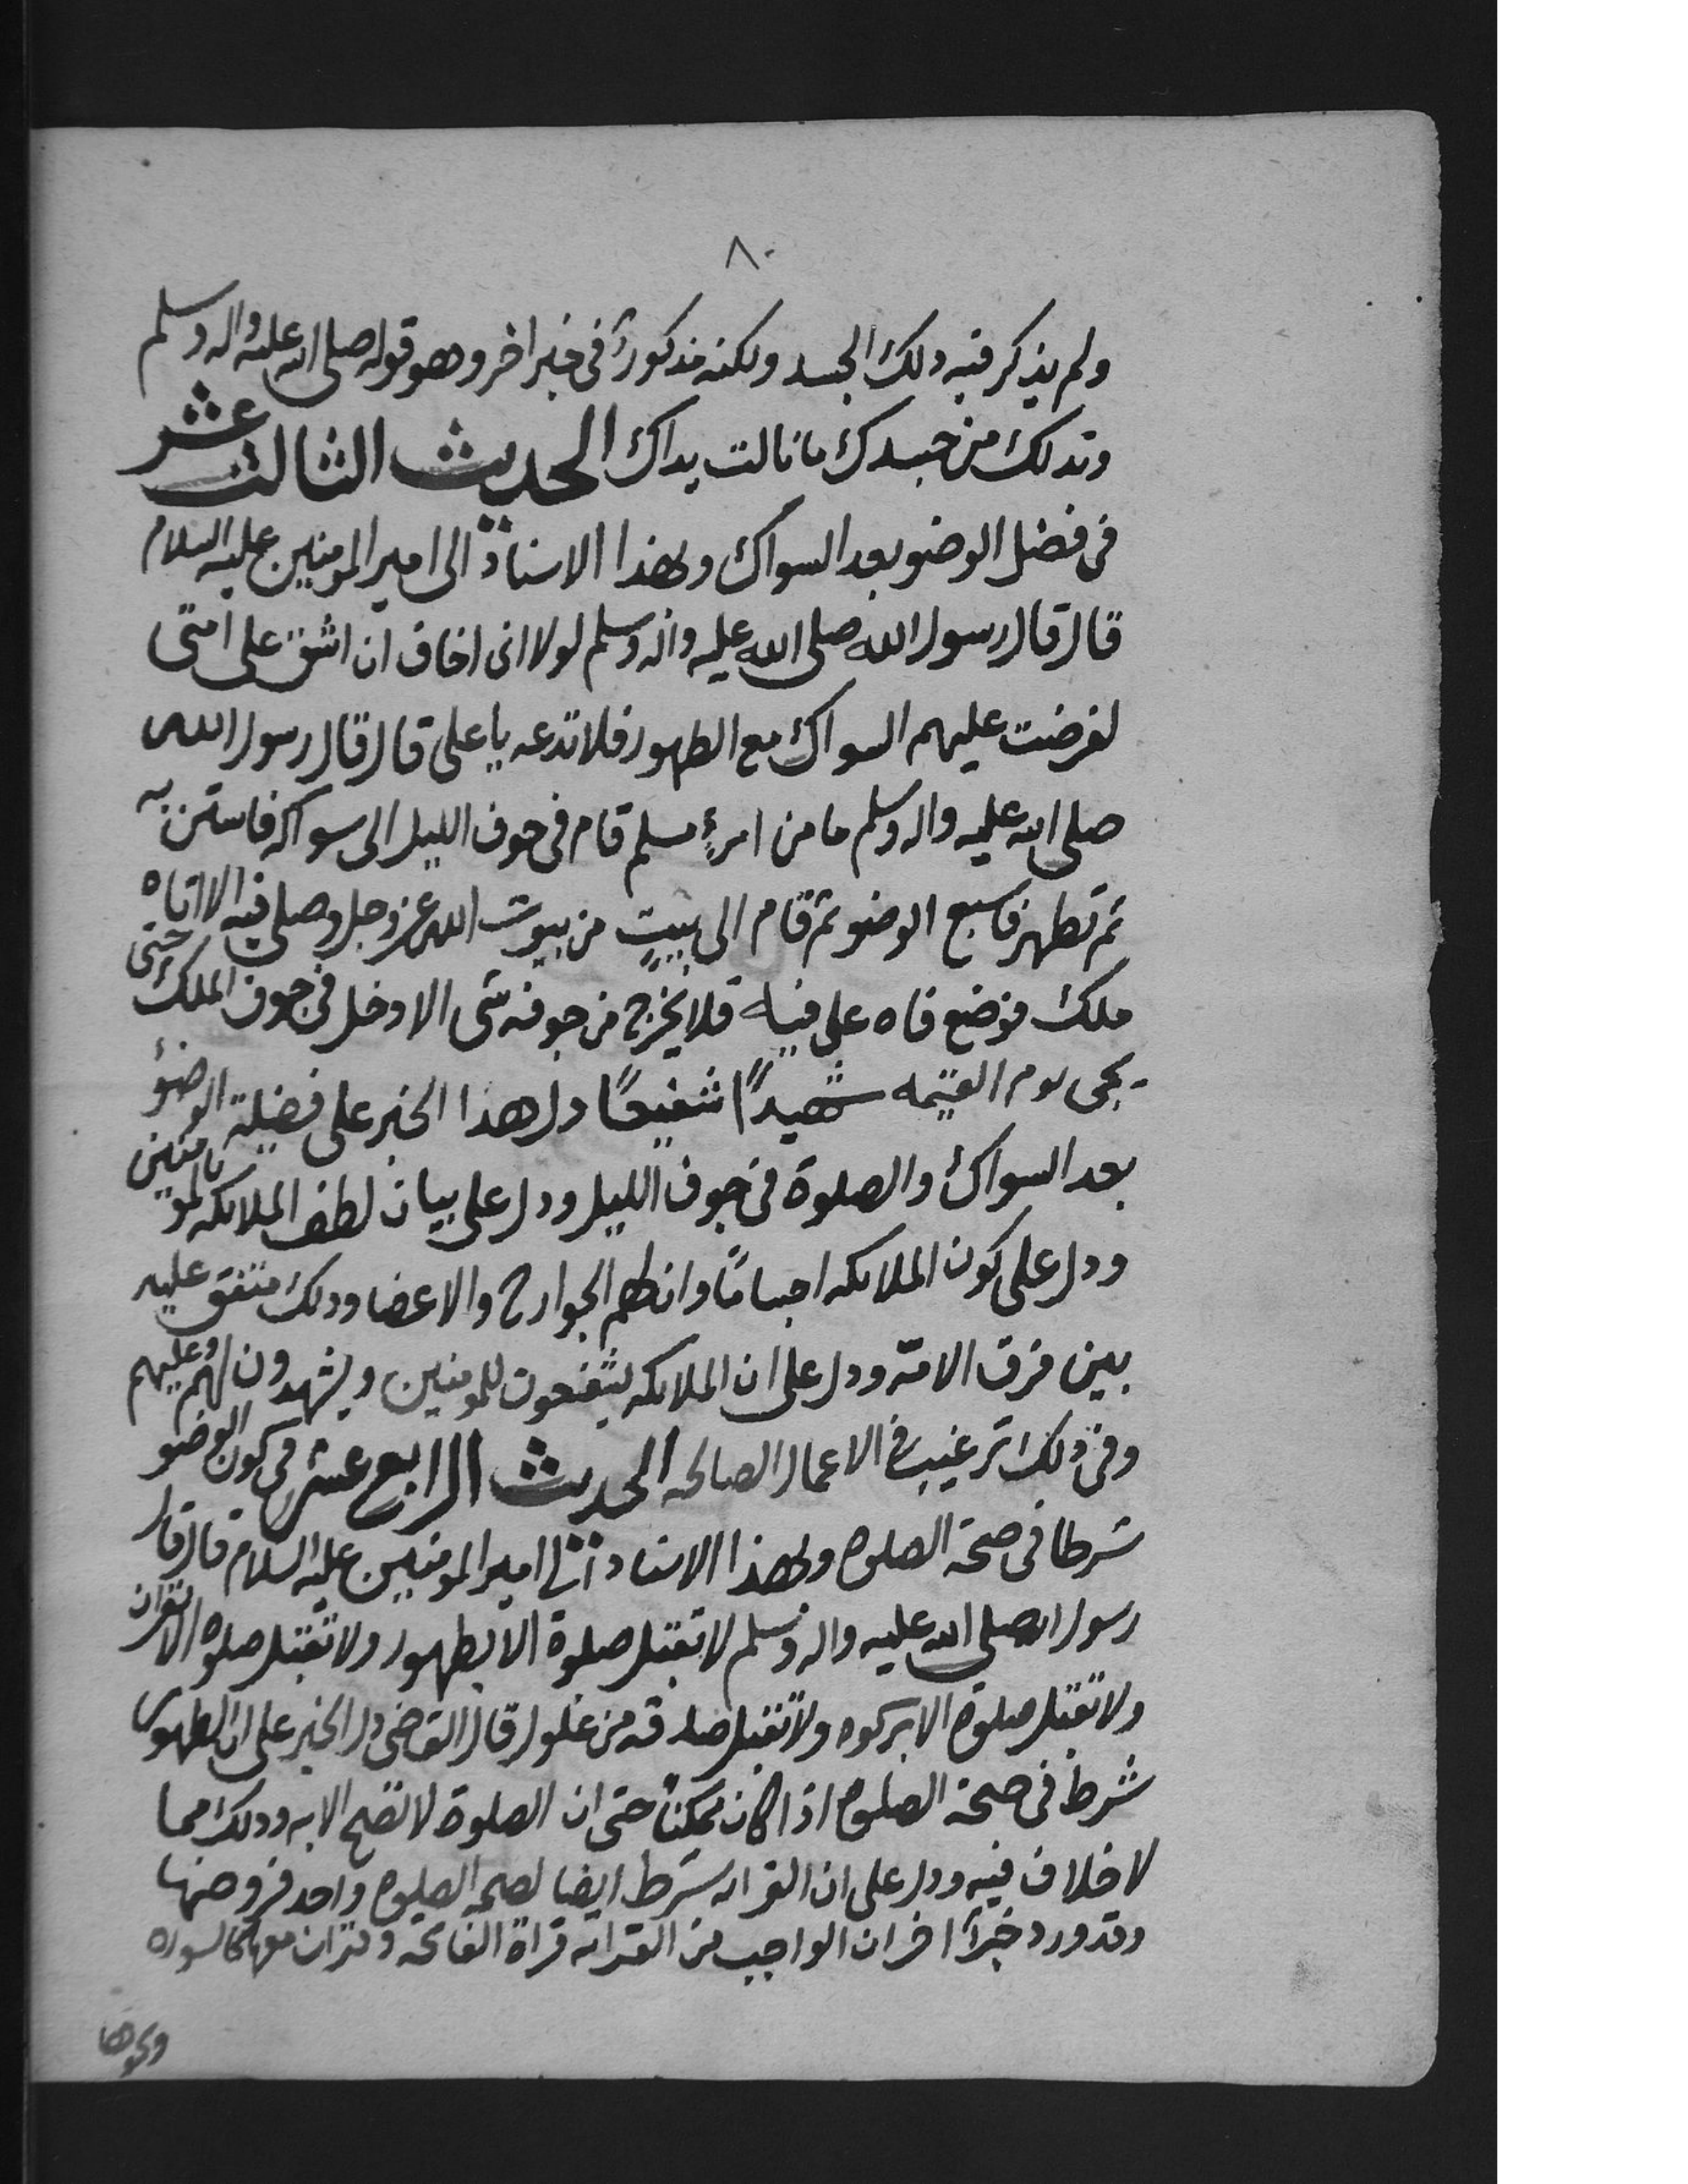 ٨٠
ولم يذكر فيه دلك الجسد ولكنه مذكورٌ فى خبر اخر وهو قوله صلى الله عليه واله وسلم
وتدلك من جسدك ما نالت يداك الحديث الثالث عشر
فى فضل الوضو بعد السواك وبهذا الاسناد الى امير المومنين عليه السلام
قال قال رسول الله صلى الله عليه واله وسلم لولا انى اخاف ان اشق على امتى
لفرضت عليهم السواك مع الطهور فلا تدعه يا على قال قال رسول الله
صلى الله عليه واله وسلم ما من امرءٍ مسلم قام فى جوف الليل الى سواكه فاستن به
ثم تطهر فاسبع الوضو ثم قام الى بيتٍ من بيوت الله عز وجل وصلى فيه الا اتاه
ملك فوضع فاه على فيه فلا يخرج من جوفه شى الا دخل فى جوف الملك حتى
يجى يوم القيمه شهيدًا شفيعًا دل هذا الخبر على فضيلة الوضؤ
بعد السواك والصلوة فى جوف الليل ودل على بيان لطف الملائكه بالمومنين
ودل على كون الملائكه اجسامًا وان لهم الجوارح والاعضا وذلك متفق عليه
بين فرق الامة ودل على ان الملائكه يشفعون للمومنين ويشهدون لهم وعليهم
وفى ذلك ترغيب فى الاعمال الصالحه الحديث الرابع عشر فى كون الوضو
شرطا فى صحة الصلوه وبهذا الاسناد الى امير المومنين عليه السلام قال قال
رسول الله صلى الله عليه واله وسلم لا تقبل صلوة الا بطهور ولا تقبل صلوه الا بقران
ولا تقبل صلوة الا بزكوه ولا تقبل صدقه من غلول قال القاضى دل الخبر على ان الطهور
شرط فى صحة الصلوه اذا كان ممكنًا حتى ان الصلوة لا تصح الا به وذلك مما
لا خلاف فيه ودل على ان القراه شرط ايضا لصحه الصلوه واحد فروضها
وقد ورد خبرٌ اخر ان الواجب من القراه قراة الفاتحه وقران معها كالسوره
ونحوها